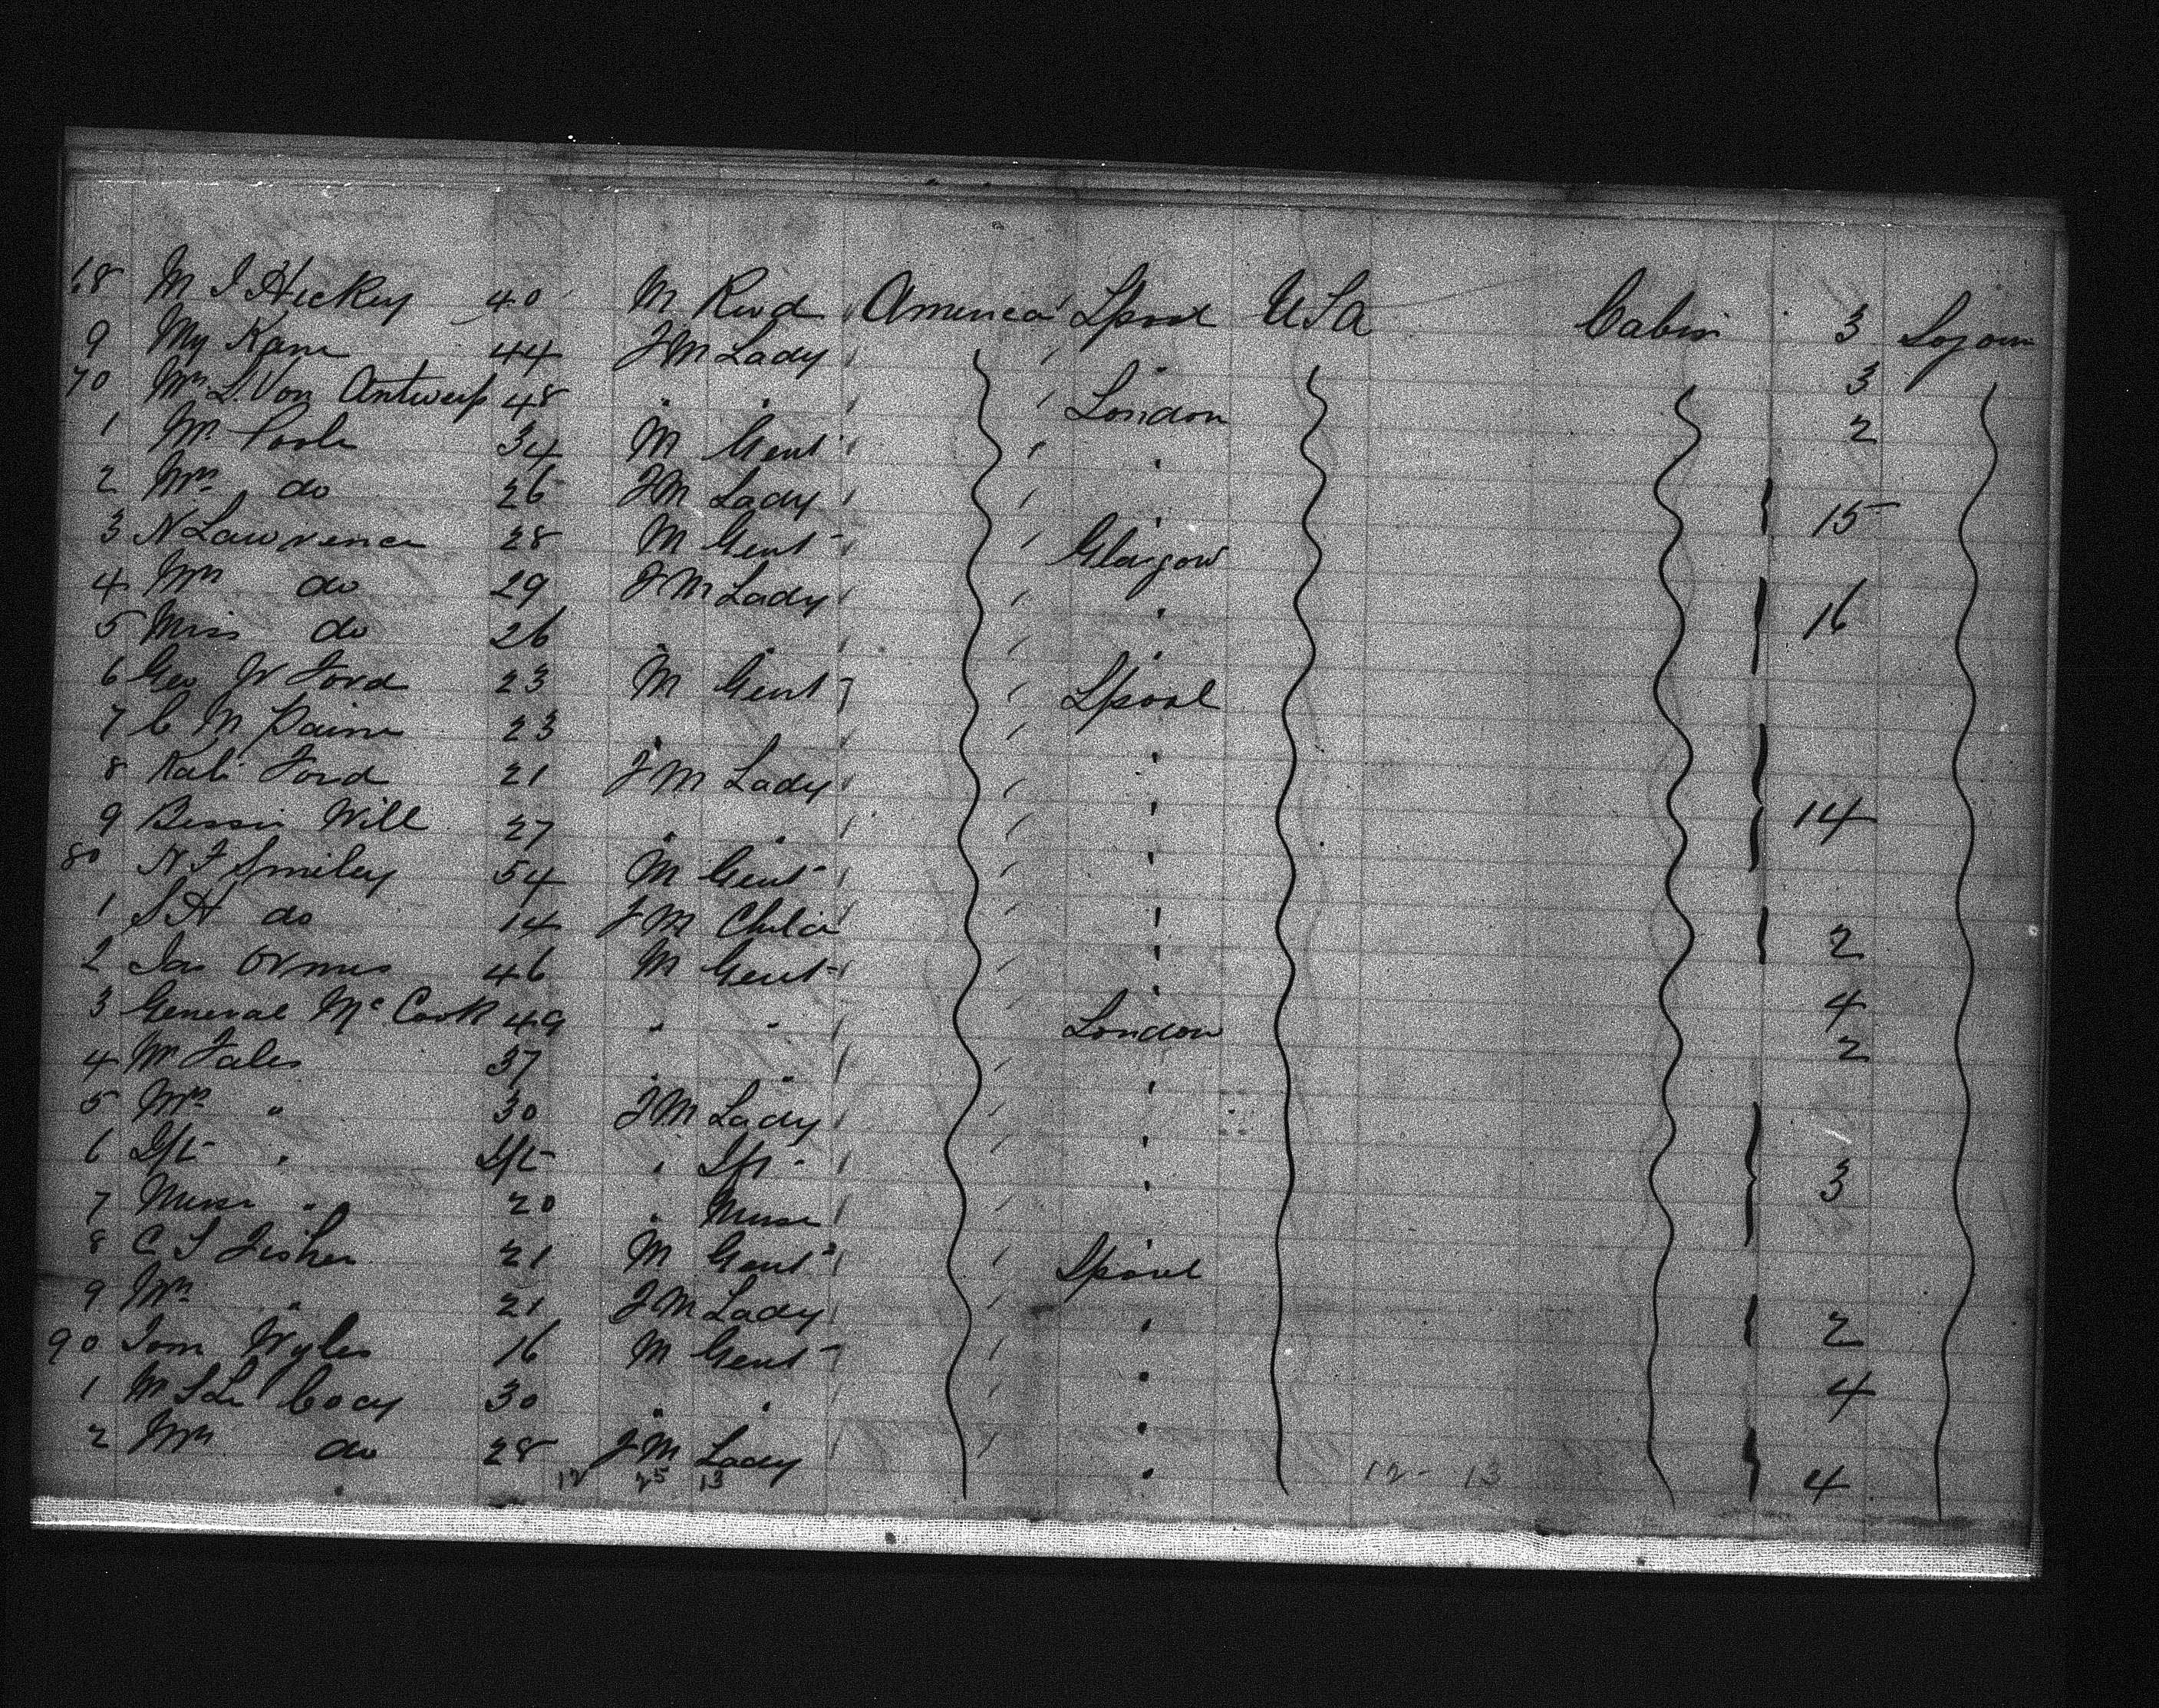 68 M J Hickey 40 M Revd America Lpool USA Cabin 3 Sojourn
9 My Kane 44 F M Lady " 3
70 Mrs L. Von Antwerp 48 " " London 2
1 Mr Poole 34 M Gent "
2 Mrs do 26 F M Lady " 15
3 N Lawrence 28 M Gent Glasgow
4 Mrs do 29 F M Lady " 16
5 Miss do 26 " " "
6 Geo W Ford 23 M Gent Lpool
7 C M Paine 23 " "
8 Kate Ford 21 F M Lady "
9 Bessie Will 27 " " " 14
80 N F Smiley 54 M Gent "
1 S H do 14 F M Child " 2
2 Jas Ormes 46 M Gent " 4
3 General McCook 49 " " London 2
4 Mr Fales 37 " " "
5 Mrs " 30 F M Lady "
6 Ift " Ift " Ift " 3
7 Nurse " 20 " Nurse "
8 C S Fisher 21 M Gent Lpool
9 Mrs " 21 F M Lady " 2
90 Tom Wyles 16 M Gent " 4
1 M Cocy 30 " " "
2 Mrs do 28 F M Lady " 4
12 25 13 12 - 13